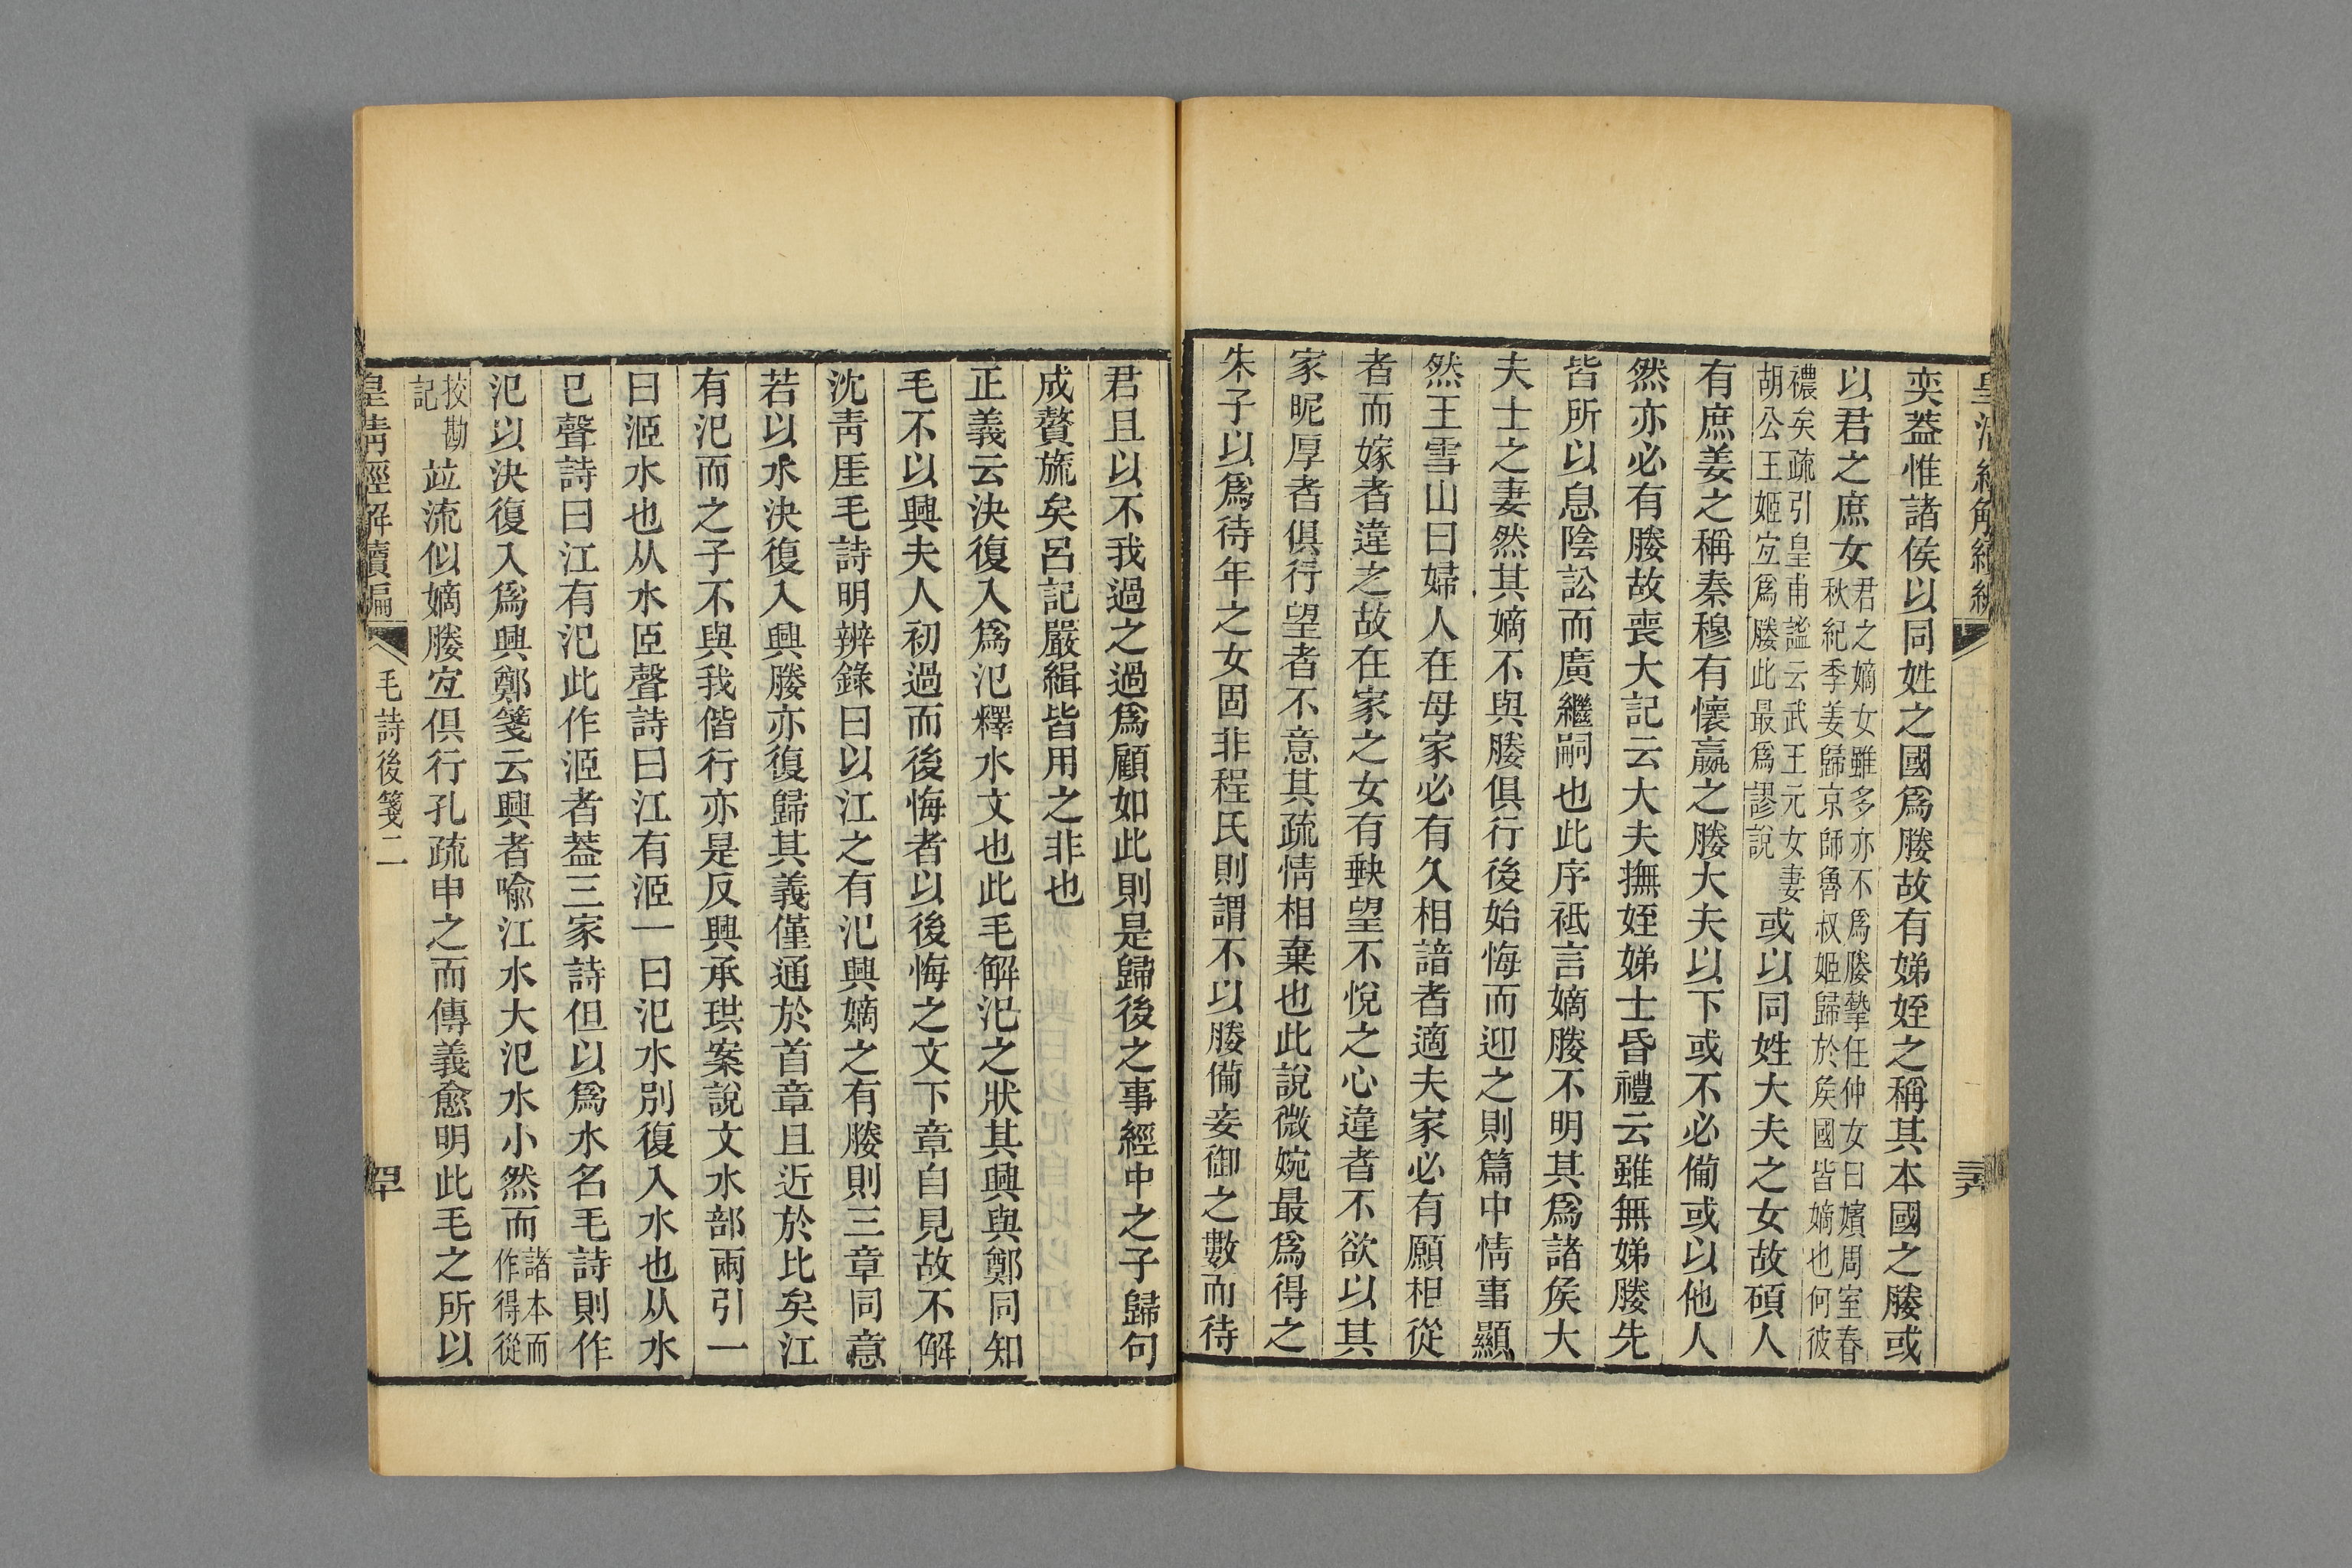 奕葢惟諸侯以同姓之國爲媵故有娣姪之稱其本國之媵或
以君之庶女君之嫡女雖多亦不爲媵摯任仲女曰嬪周室春
秋紀季姜歸京師魯叔姬歸於矦國皆嫡也何彼
襛矣疏引皇甫謐云武王元女妻
胡公王姬宐爲媵此最爲謬說或以同姓大夫之女故碩人
有庶姜之稱秦穆有懷嬴之媵大夫以下或不必備或以他人
然亦必有媵故喪大記云大夫撫姪娣士昏禮云雖無娣媵先
皆所以息陰訟而廣繼嗣也此序祗言嫡媵不明其爲諸矦大
夫士之妻然其嫡不與媵俱行後始悔而迎之則篇中情事顯
然王雪山曰婦人在母家必有久相諳者適夫家必有願相從
者而嫁者違之故在家之女有觖望不悅之心違者不欲以其
家昵厚者俱行望者不意其疏情相棄也此說微婉最爲得之
朱子以爲待年之女固非程氏則謂不以媵備妾御之數而待
君且以不我過之過爲顧如此則是歸後之事經中之子歸句
成贅旒矣呂記嚴緝皆用之非也
正義云決復入爲汜釋水文也此毛解汜之狀其興與鄭同知
毛不以興夫人初過而後悔者以後悔之文下章自見故不解
沈靑厓毛詩明辨錄曰以江之有汜興嫡之有媵則三章同意
若以水決復入興媵亦復歸其義僅通於首章且近於比矣江
有汜而之子不與我偕行亦是反興承珙案說文水部兩引一
曰洍水也从水𦣞聲詩曰江有洍一曰汜水別復入水也从水
巳聲詩曰江有汜此作洍者葢三家詩但以爲水名毛詩則作
汜以決復入爲興鄭箋云興者喻江水大汜水小然而諸本而
作得從
挍勘
記竝流似嫡媵宐俱行孔疏申之而傳義愈明此毛之所以
皇淸經解續編
毛詩後箋二